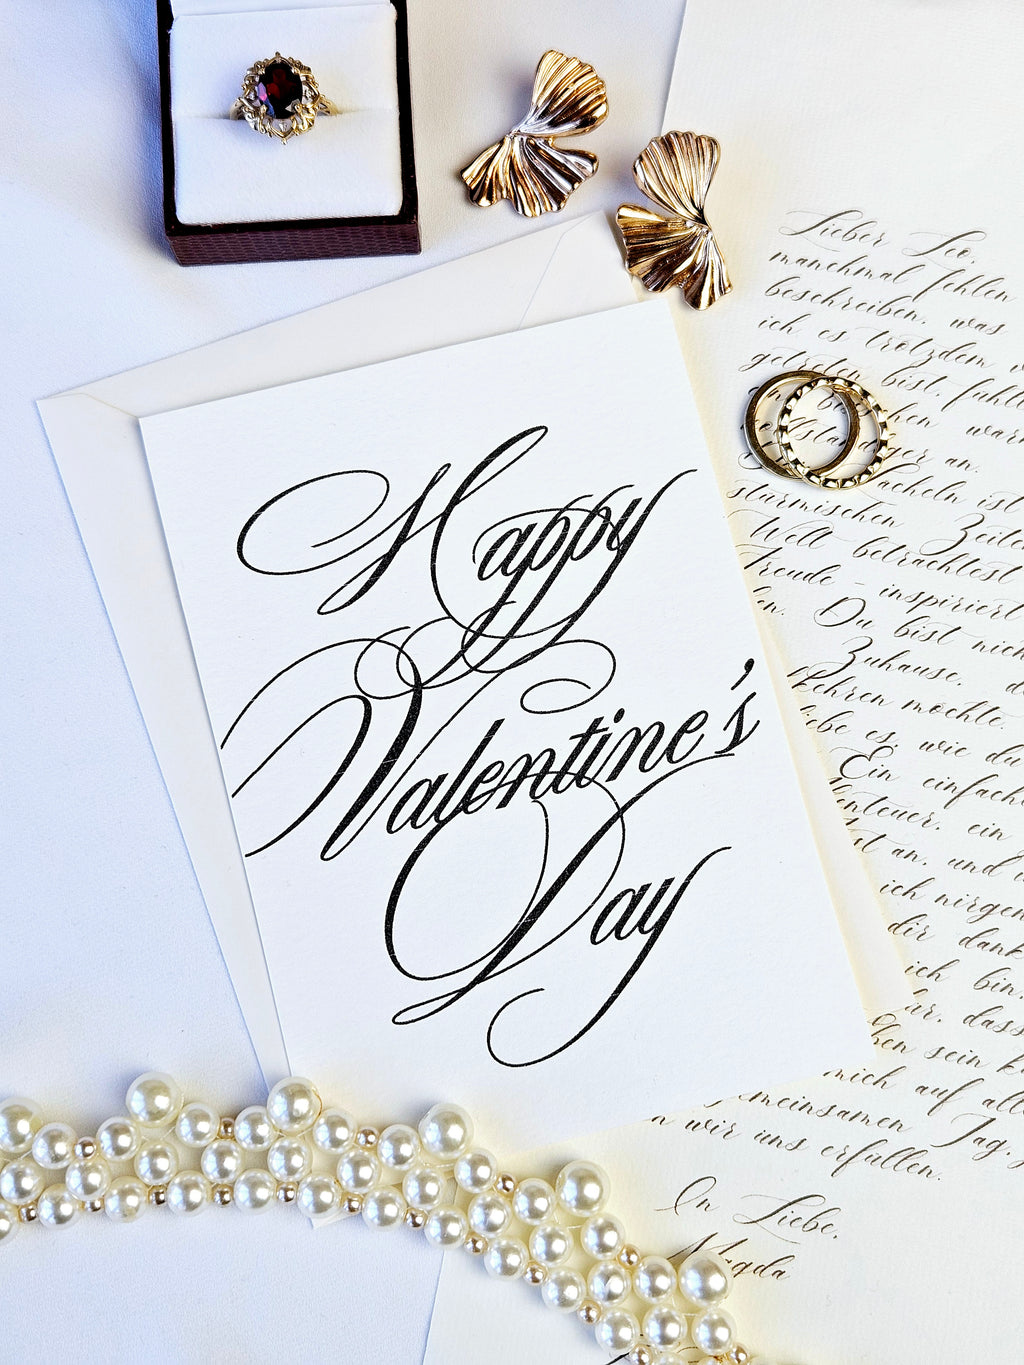 Happy
Valentine's
Day
Lieber Leo,
manchmal fehlen
beschreiben, was
ich es trotzdem
getreten bist, fühlt
warm
an.
Lächeln ist
stürmischen Zeiten
Welt betrachtest
Freude - inspiriert
Du bist nicht
Zuhause,
möchte.
es, wie du
Ein einfach
ein
an, und
ich nirgen
dir dank
ich bin,
dass
sein
mich auf
Tag,
wir uns erfüllen.
In Liebe,
Magda